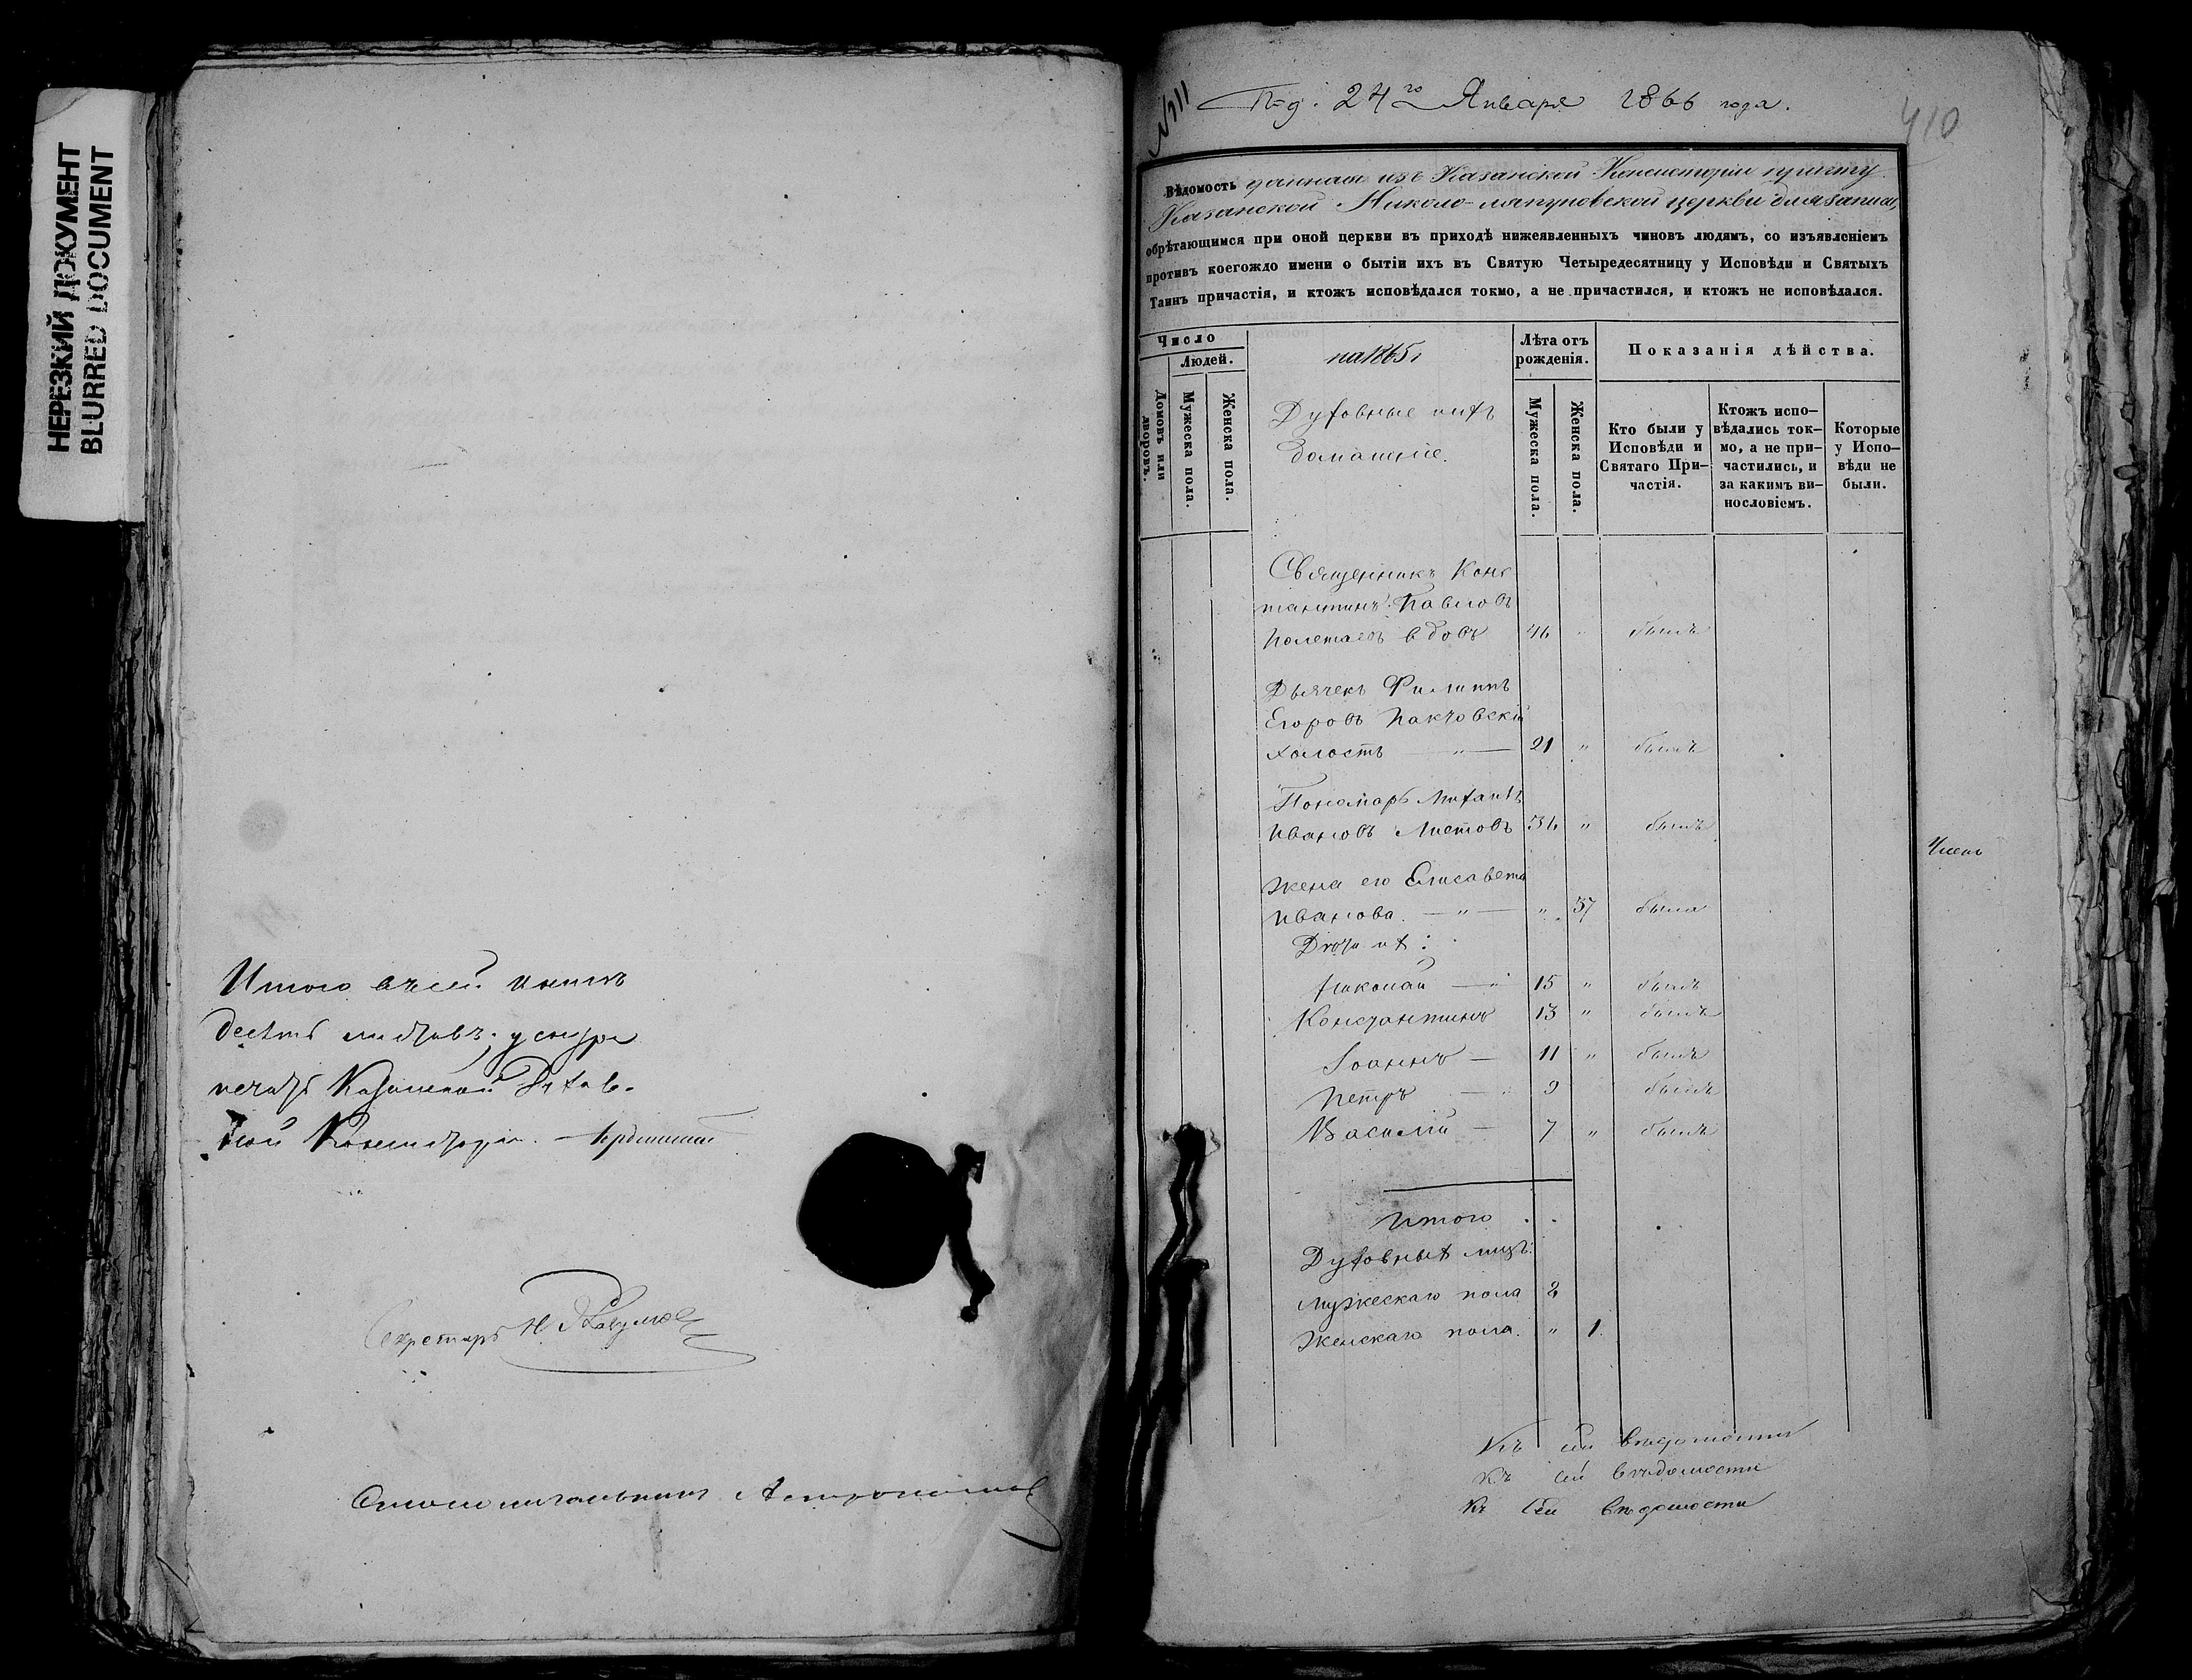 НЕРЕЗКИЙ ДОКУМЕНТ
BLURRED DOCUMENT
Итого въ сей книгѣ
десять листовъ; у снура
печать Казанской Духов-
ной Консисторіи.
Секретарь Н.
Столоначальникъ
№11
Под. 24го Января 1866 года.
410
Вѣдомость данная изъ Казанской Консисторіи причту
Казанской Николо-ляпуновской церкви для записи,
обрѣтающимся при оной церкви въ приходѣ нижеявленныхъ чиновъ людямъ, со изъявленіемъ
противъ коегождо имени о бытіи ихъ въ Святую Четыредесятницу у Исповѣди и Святыхъ
Таинъ причастія, и ктожъ исповѣдался токмо, а не причастился, и ктожъ не исповѣдался.
Число
Людей.
Домовъ или дворовъ.
Мужеска пола.
Женска пола.
на 1865 г
Духовные и ихъ
домашніе.
Лѣта отъ
рожденія.
Мужеска пола.
Женска пола.
Показанія дѣйства.
Кто были у
Исповѣди и
Святаго При-
частія.
Ктожъ испо-
вѣдались ток-
мо, а не при-
частились, и
за какимъ ви-
нословіемъ.
Которые
у Испо-
вѣди не
были.
Священникъ Конс
тантинъ Павловъ
Полетаевъ вдовъ 46 " былъ
Дьячекъ Филиппъ
Егоровъ Пакчовскій
холостъ — " — 21 " былъ
Пономарь Михаилъ
Ивановъ Листовъ 36 " былъ
Членъ
Жена его Елисавета
Иванова. — " — " 37 была
Дѣти ихъ:
Николай — " 15 " былъ
Константинъ 13 " былъ
Іоаннъ — 11 " былъ
Петръ — " 9 былъ
Василій — 7 " былъ
Итого
Духовныхъ лицъ:
Мужескаго пола 8
Женскаго пола. " 1.
Къ сей вѣдомости
Къ сей вѣдомости
Къ сей вѣдомости